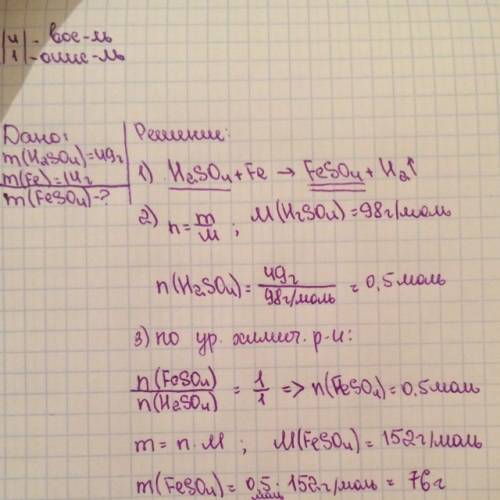 4 - вос-ль
1 - окис-ль
Дано:
m(H₂SO₄)=49г
m(Fe)=14г
m(FeSO₄)-?
Решение:
1) H₂SO₄ + Fe → FeSO₄ + H₂↑
2) n = m/M ; M(H₂SO₄)=98г/моль
n(H₂SO₄) = 49г / 98г/моль = 0,5 моль
3) по ур. химич. р-и:
n(FeSO₄) / n(H₂SO₄) = 1/1 => n(FeSO₄)=0,5моль
m = n·M ; M(FeSO₄) = 152г/моль
m(FeSO₄) = 0,5 моль · 152г/моль = 76г